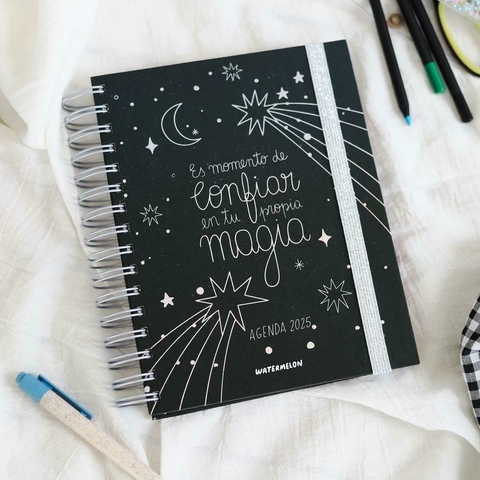 Es momento de
confiar
en tu propia
magia
AGENDA 2025
WATERMELON